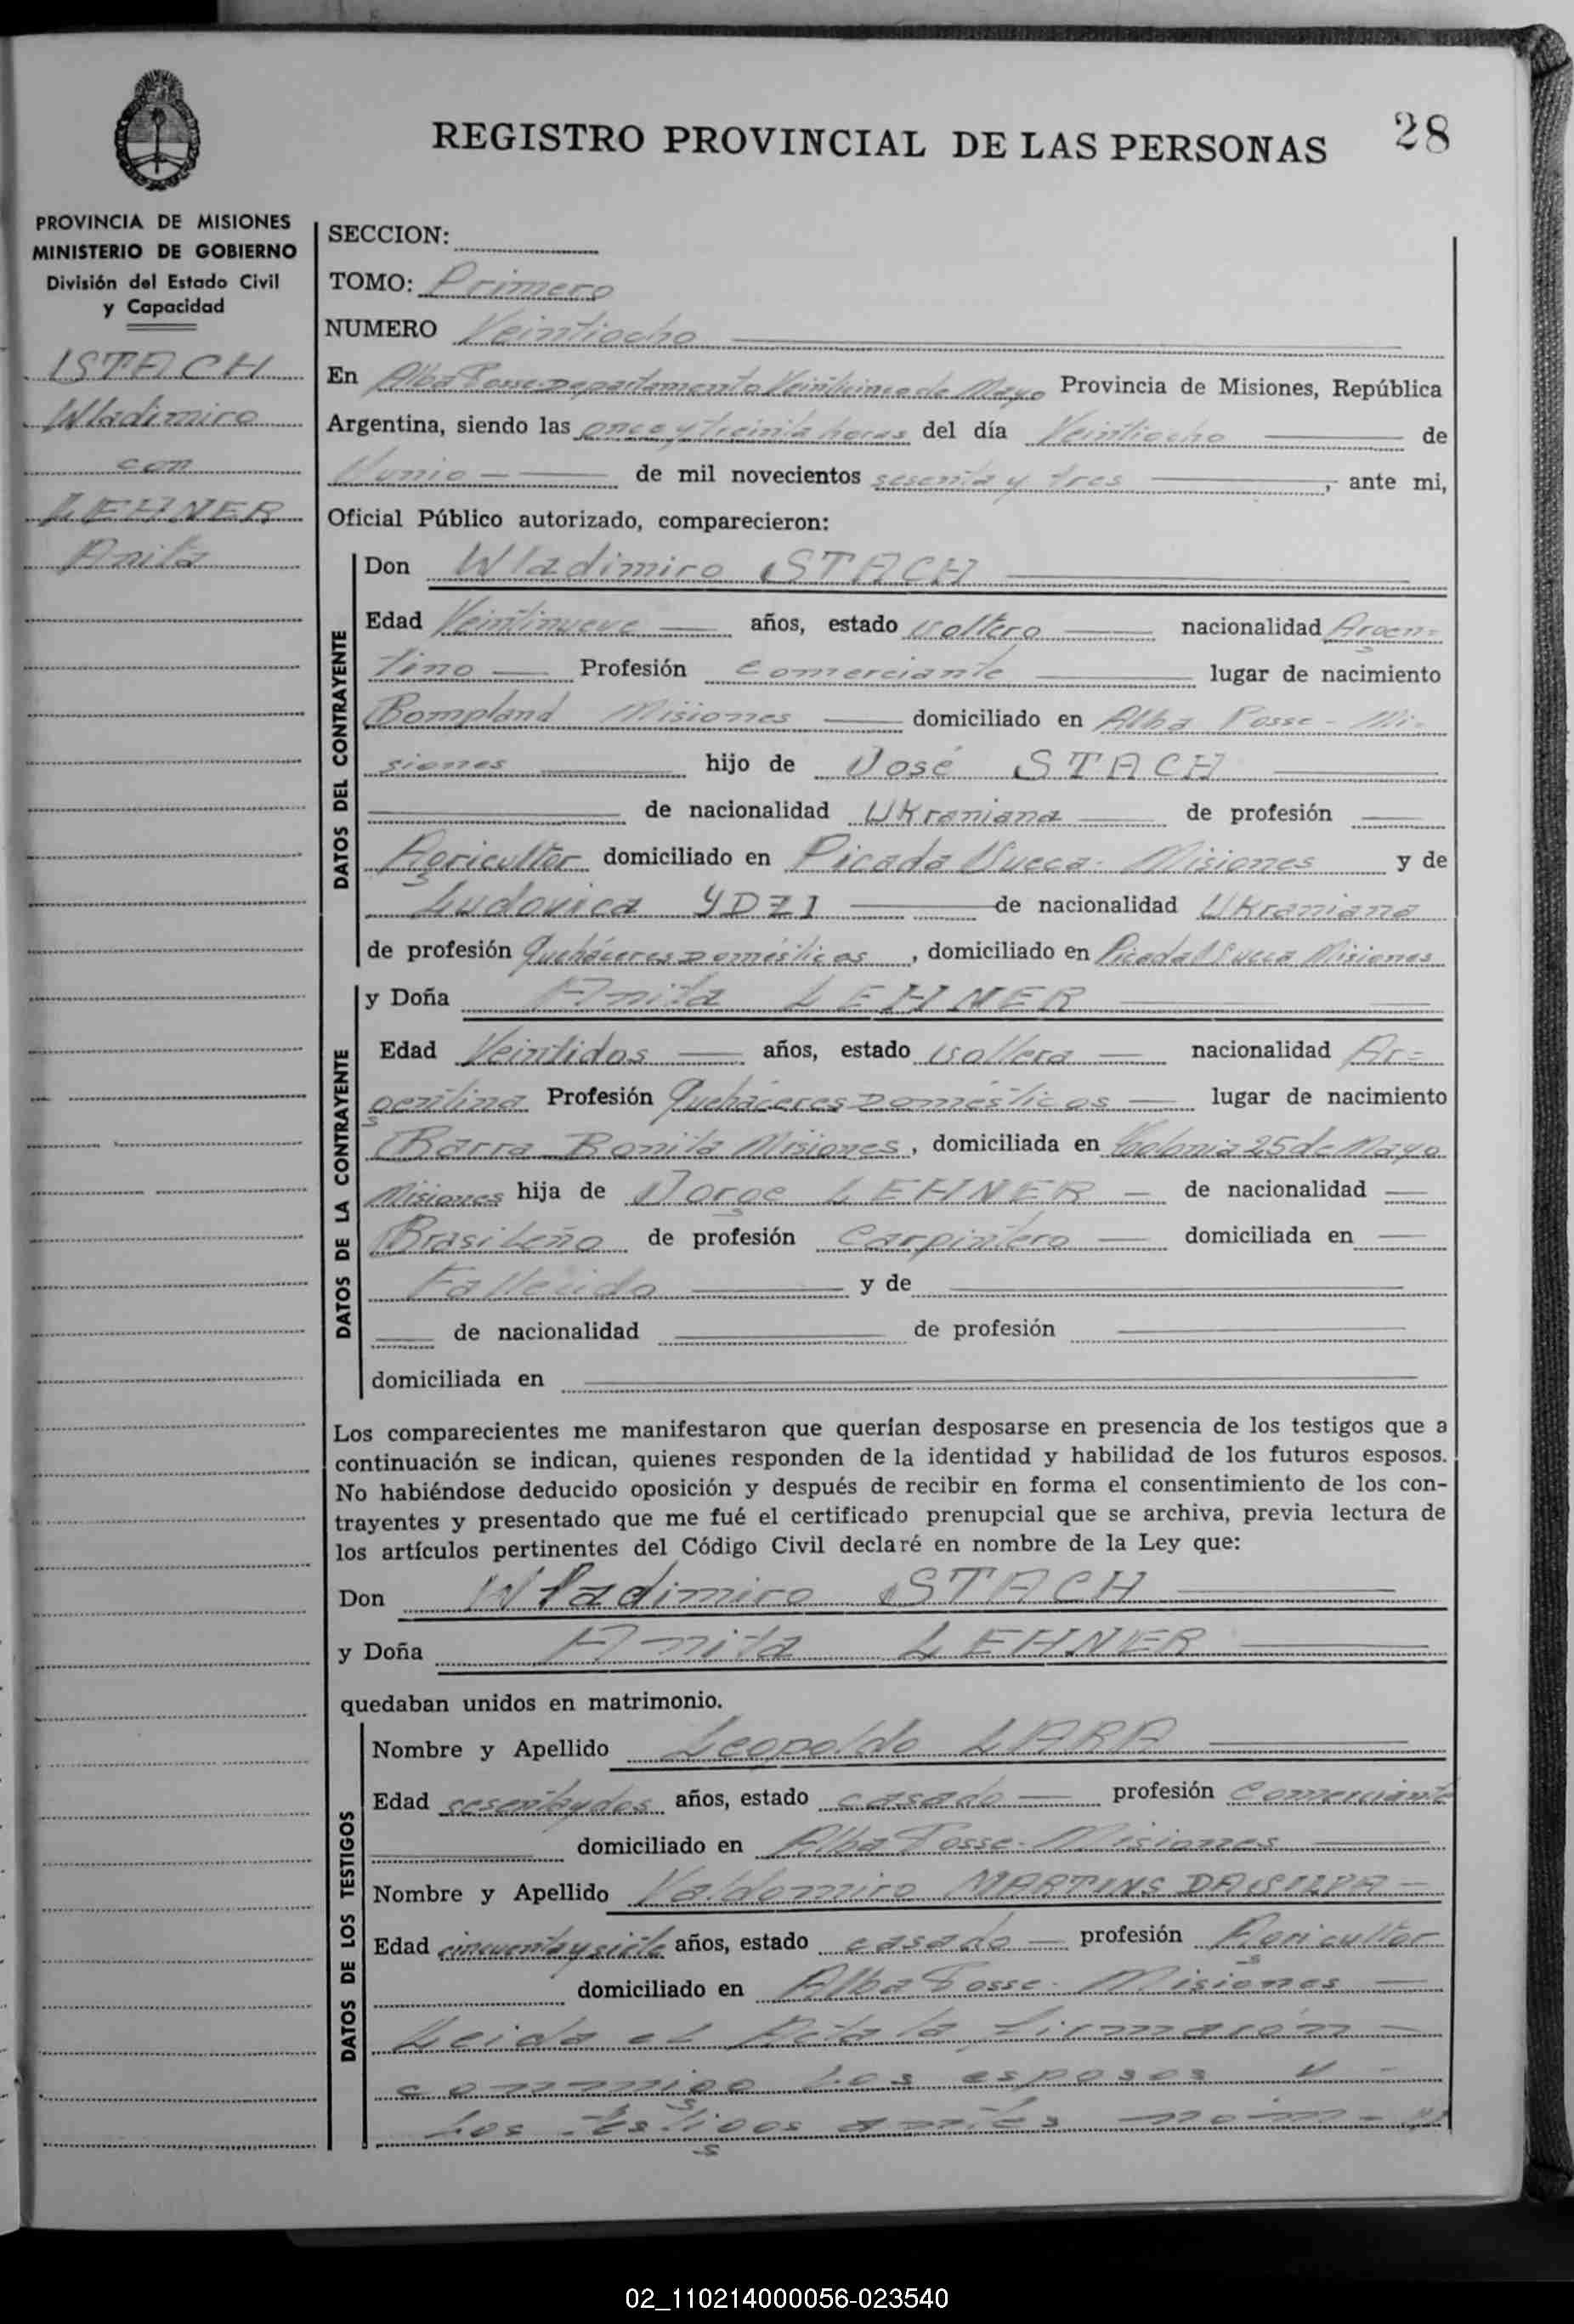 REGISTRO PROVINCIAL DE LAS PERSONAS 28
PROVINCIA DE MISIONES
MINISTERIO DE GOBIERNO
División del Estado Civil
y Capacidad
STACH
Wladimiro
con
LEHNER
Anita
SECCION:
TOMO: Primero
NUMERO Veintiocho
En Alba Posse Departamento Veinticinco de Mayo Provincia de Misiones, República
Argentina, siendo las once y treinta horas del día Veintiocho de
Junio de mil novecientos sesenta y tres, ante mi,
Oficial Público autorizado, comparecieron:
DATOS DEL CONTRAYENTE
Don Wladimiro STACH
Edad Veintinueve años, estado soltero nacionalidad Argen-
tino Profesión Comerciante lugar de nacimiento
Bompland Misiones domiciliado en Alba Posse - Mi-
siones hijo de José STACH
de nacionalidad Ukraniana de profesión
Agricultor domiciliado en Picada Sueca - Misiones y de
Ludovica YDZI de nacionalidad Ukraniana
de profesión Quehaceres Domésticos, domiciliado en Picada Sueca Misiones
DATOS DE LA CONTRAYENTE
y Doña Anita LEHNER
Edad Veintidos años, estado soltera nacionalidad Ar-
gentina Profesión Quehaceres Domésticos lugar de nacimiento
Barra Bonita Misiones, domiciliada en Colonia 25 de Mayo
Misiones hija de Jorge LEHNER de nacionalidad
Brasileño de profesión Carpintero domiciliada en
Fallecido y de
de nacionalidad de profesión
domiciliada en
Los comparecientes me manifestaron que querían desposarse en presencia de los testigos que a
continuación se indican, quienes responden de la identidad y habilidad de los futuros esposos.
No habiéndose deducido oposición y después de recibir en forma el consentimiento de los con-
trayentes y presentado que me fué el certificado prenupcial que se archiva, previa lectura de
los artículos pertinentes del Código Civil declaré en nombre de la Ley que:
Don Wladimiro STACH
y Doña Anita LEHNER
quedaban unidos en matrimonio.
DATOS DE LOS TESTIGOS
Nombre y Apellido Leopoldo LARA
Edad sesentaydos años, estado casado profesión Comerciante
domiciliado en Alba Posse - Misiones
Nombre y Apellido Valdomiro MARTINS DA SILVA
Edad cincuentaysiete años, estado casado profesión Agricultor
domiciliado en Alba Posse - Misiones
Leida el Acta la firmarón
conmigo los esposos y
los testigos antes nom-
02_110214000056-023540